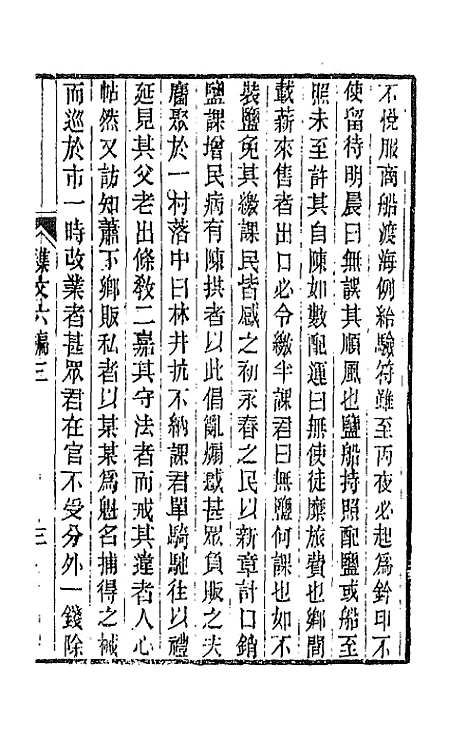 不悅服商船渡海例給驗符雖至丙夜必起爲鈐印不
使留待明晨曰無誤其順風也鹽船持照配鹽或船至
照未至許其自陳如數配運曰無使徒糜旅費也鄉間
載薪來售者出口必令繳半課君曰無鹽何課也如不
裝鹽免其繳課民皆感之初永春之民以新章計口銷
鹽課增民病有陳拱者以此倡亂煽惑甚眾負販之夫
麕聚於一村落中曰林井抗不納課君單騎馳往以禮
延見其父老出條教一二嘉其守法者而戒其違者人心
帖然又訪知蕭下鄉販私者以某某爲魁名捕得之械
而巡於市一時改業者甚眾君在官不受分外一錢除
雜文六編三
三